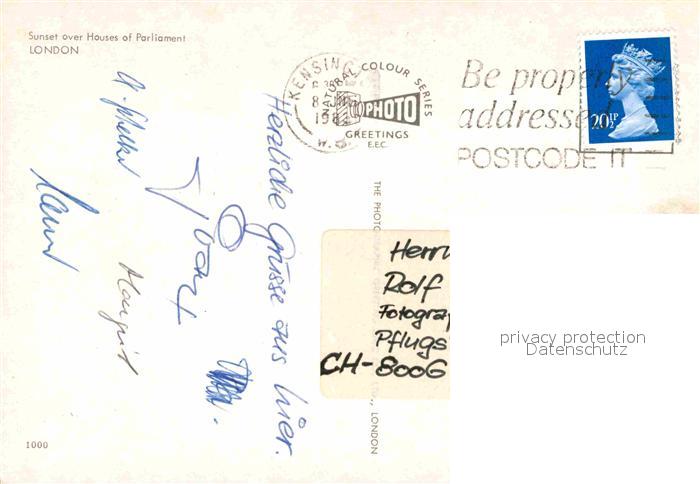 Sunset over Houses of Parliament
LONDON
KENSING
198
W. 8
NATURAL COLOUR SERIES
PHOTO
GREETINGS
E.E.C.
Be properly
addressed
POSTCODE IT
20½P
Herzliche Grüsse aus hier.
Margrit
THE PHOTOGRAPHIC GREETING
LTD., LONDON
Herrn
Rolf
Fotograf
Pflugs
CH-8006
privacy protection
Datenschutz
1000